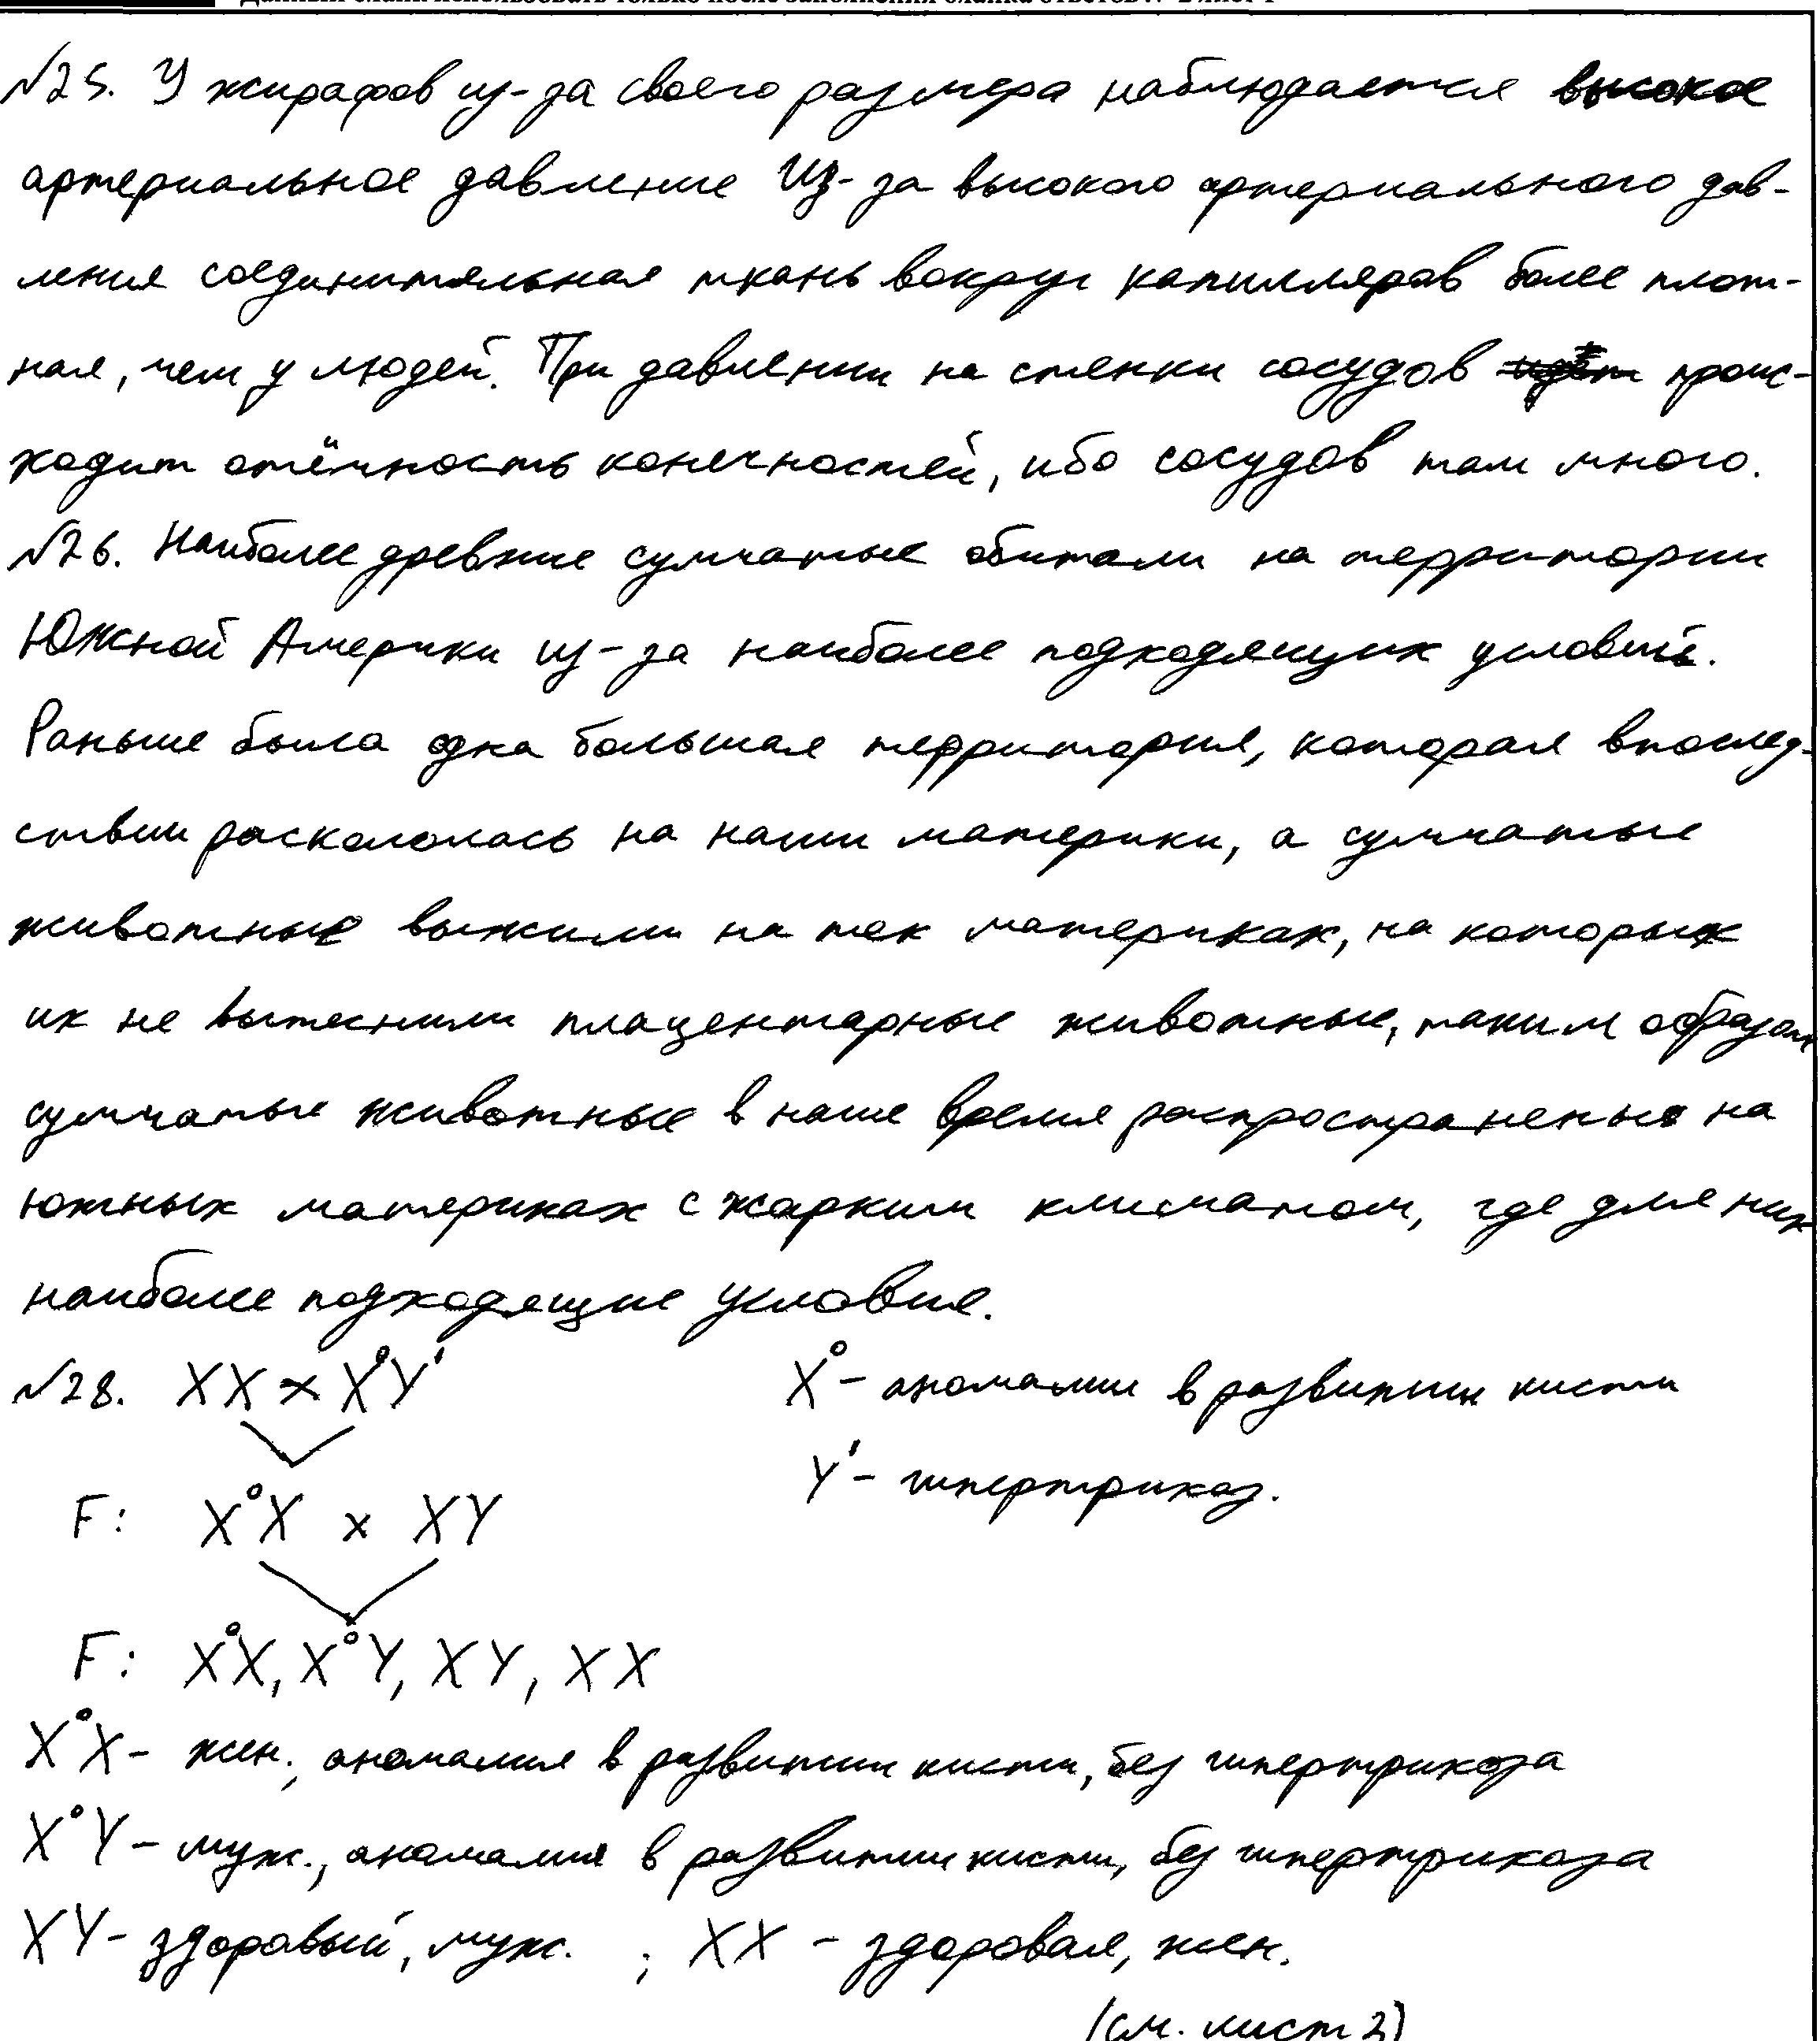 Данный бланк использовать только после заполнения бланка ответов № 2 лист 1
№25. У жирафов из-за своего размера наблюдается высокое
артериальное давление Из-за высокого артериального дав-
ления соединительная ткань вокруг капилляров более плот-
ная, чем у людей. При давлении на стенки сосудов идёт проис-
ходит отёчность конечностей, ибо сосудов там много.
№26. Наиболее древние сумчатые обитали на территории
Южной Америки из-за наиболее подходящих условий.
Раньше была одна большая территория, которая впослед-
ствии раскололась на наши материки, а сумчатые
животные выжили на тех материках, на которых
их не вытеснили плацентарные животные, таким образом
сумчатые животные в наше время распространены на
южных материках с жарким климатом, где для них
наиболее подходящие условия.
№28. XX × X°Y' X° - аномалии в развитии кисти
Y' - гипертрихоз.
F: X°X × XY
F: X°X, X°Y, XY, XX
X°X - жен., аномалия в развитии кисти, без гипертрихоза
X°Y - муж., аномалия в развитии кисти, без гипертрихоза
XY - здоровый, муж. ; XX - здоровая, жен.
(см. лист 2)